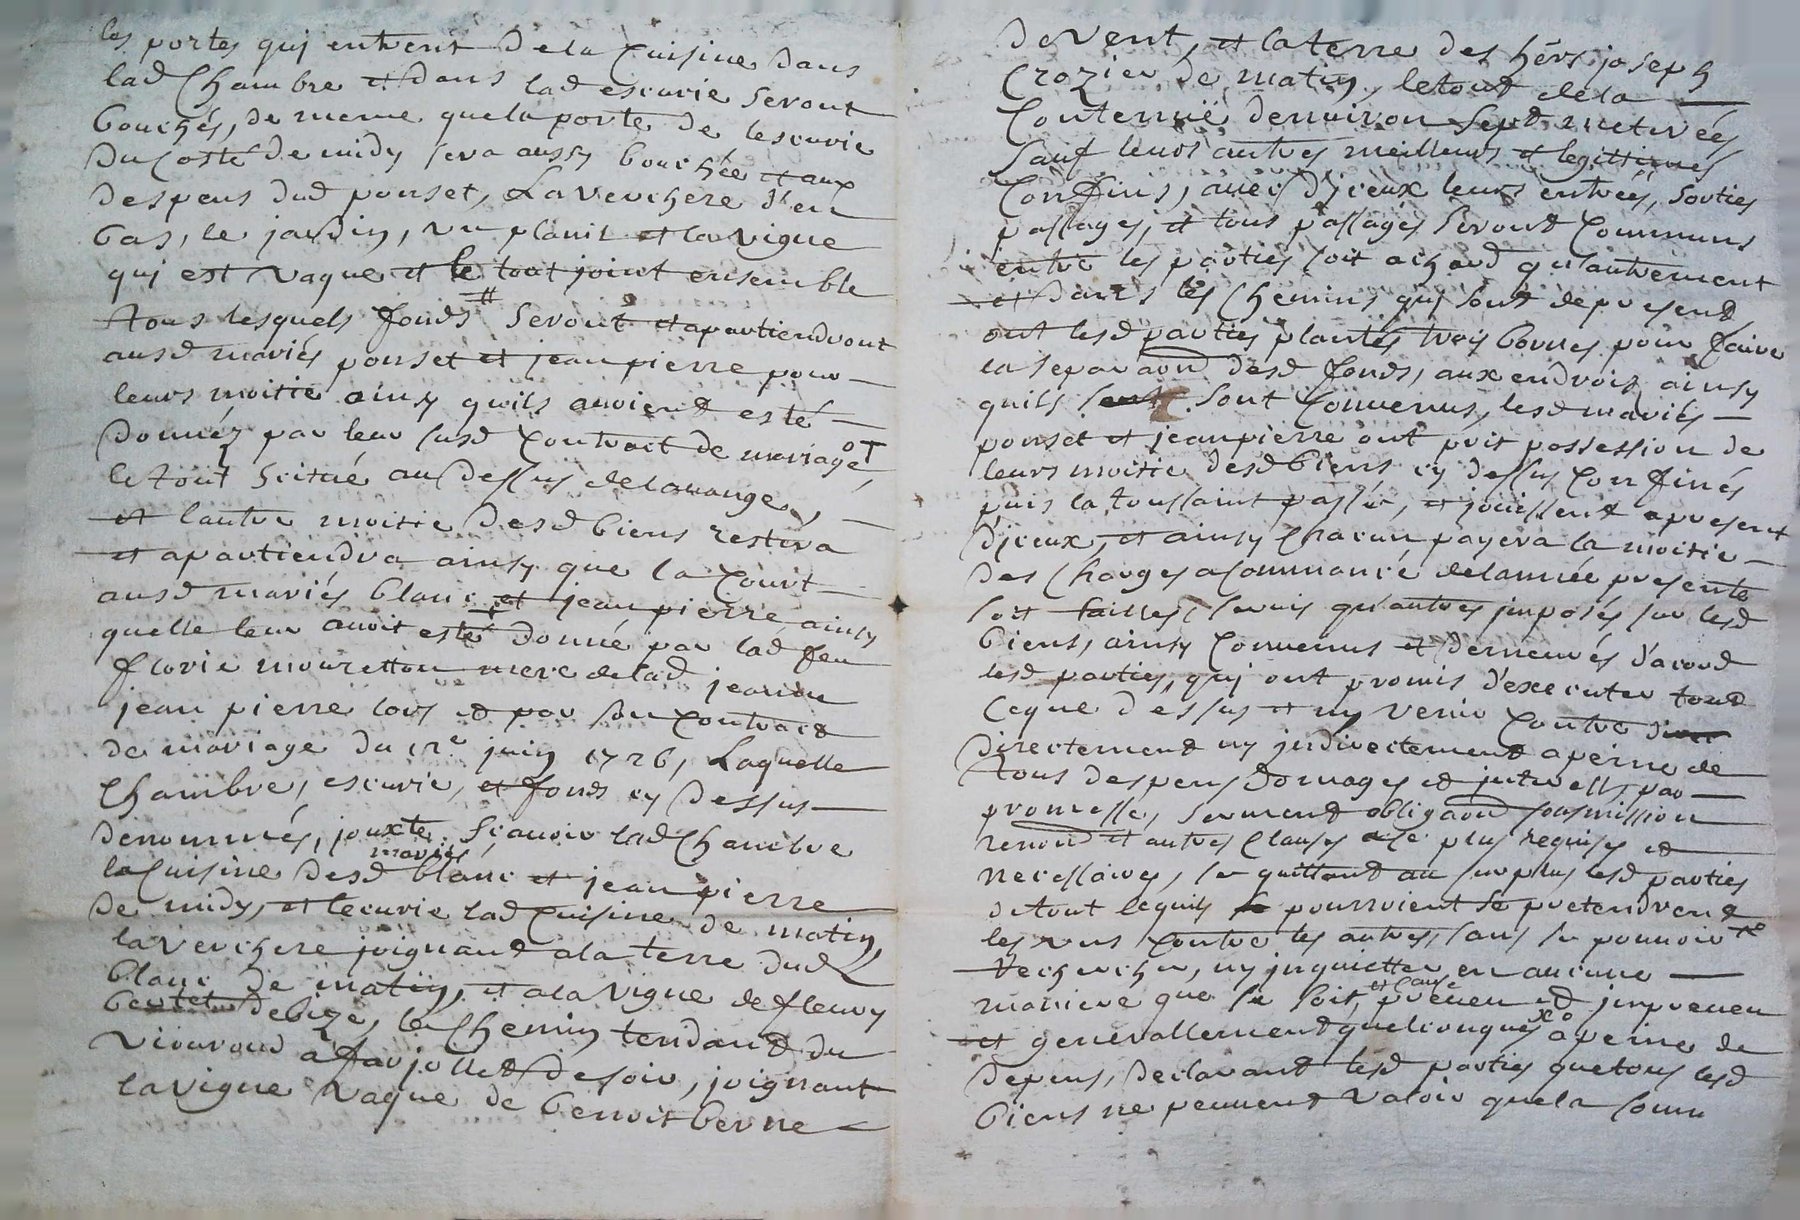 les portes quj entrent de la Cuisine dans
lad Chambre et dans lad escurie seront
bouchés, de meme que la porte de lescurie
du costé de midy sera aussy bouchée et aux
despens dud ponset, La verchere d'en
bas, le jardin, un planil et la vigne
quj est vaque et le tout joint ensemble
tous lesquels fonds # seront et apartiendront
ausd mariés ponset et jeanpierre pour
leurs moitie ainsy quils avoient esté
donnéz par leur susd Contrait de mariage,
le tout scitué au dessus de lamange,
et lautre moitie desd biens restera
et apartiendra ainsy que la Court
ausd mariés blanc et jeanpierre ainsy
quelle leur avoit esté + donné par lad feu
florie mouretton mere de lad jeanne
jean pierre lors et par son Contract
de mariage du 12e juin 1726, Laquelle
Chambre, escurie, et fonds cy dessus
denommés, jouxte sçavoir lad Chambre
la Cuisine desd mariés blanc et jeanpierre
de midy, et lecurie lad Cuisine de matin,
la verchere joignant a la terre dud
blanc de matin, et a la vigne de fleury
bertet de bize, le Chemin tendant du
viouroud à farjollet de soir, joignant
la vigne vaque de benoit berne
de vent, et la terre des hérs joseph
Crozier de matin, le tout de la
Contenuë denviron sept metreés
sauf leurs autres meilleurs et legittimes
Confins, avec d'jceux leurs entreés, sorties
passages, et tous passages seront Communs
entre les parties soit a chard qu'autrement
et dans les Chemins quj sont de present
ont lesd parties plantés trois bornes pour faire
la separaon desd fonds, aux endrois ainsy
quils sont Convenus, lesd mariés
ponset et jeanpierre ont prit possession de
leurs moitie desd biens cy dessus Confinés
puis la toussaint passée, et joüissent apresent
d'jceux, et ainsy Chacun payera la moitie
des Charges a Commancé de lannée presente
soit tailles, servis qu'autres jmposés sur lesd
biens, ainsy Convenus et demeurés d'acord
lesd parties, quj ont promis d'executer tout
ce que dessus et ny venir Contre
directement ny jndirectement a peine de
tous despens domages et jnterests, par
promesse, serment obligaon sousmission
renon et autres Clauses a ce plus requises et
necessaires, se quittant au surplus lesd parties
de tout ce quils pourroient se pretendrent
les uns Contre les autres, sans se pouvoir
rechercher, ny jnquietter en aucune
maniere que ce soit, et Cause preveu et jmpreveu
et generallement quelconques a peine de
depens, declarant lesd parties que tous lesd
biens ne peuvent valoir que la somm